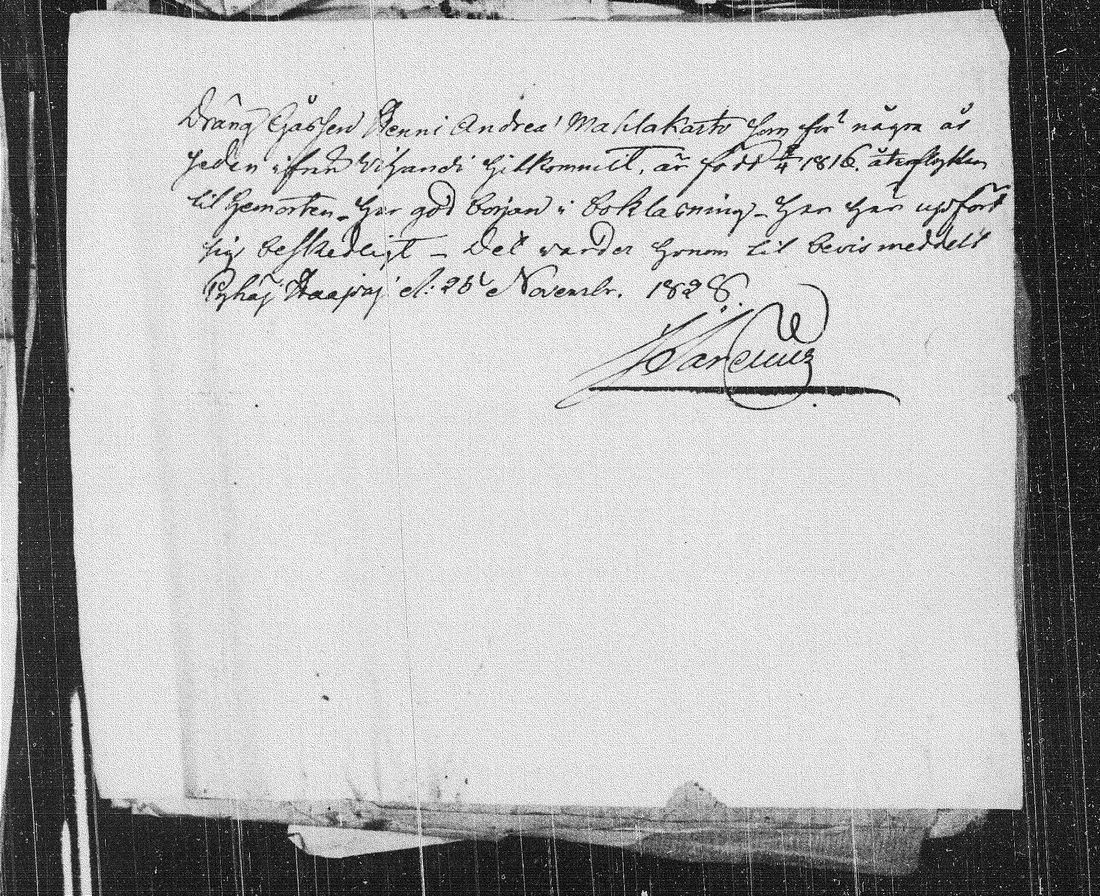 Dräng Gåssen Henni Andrea' Mahlakarto som för några år
sedan ifrån Vihandi hitkommit, är född 4/4 1816. återflyttar
til hemorten. Har god början i bokläsning – han har upfört
sig beskedligt – Det warder honom til bevis meddelt
Pyhäj Haapaj d: 25' Novembr. 1828.